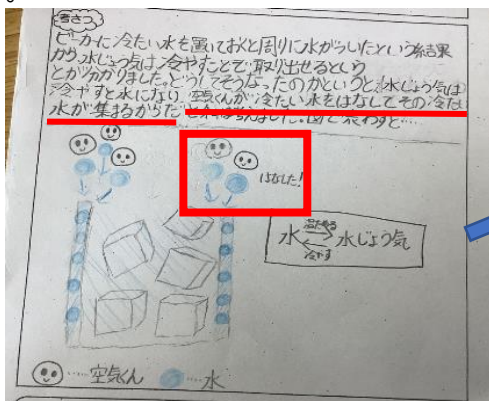 考さつ
ビーカに冷たい水を置いておくと周りに水がついたという結果
から、水じょう気は冷やすことで取り出せるという
ことが分かりました。どうしてそうなったのかというと、水じょう気は
冷やすと水になり空気くんが冷たい水をはなしてその冷たい
水が集まるからだと考えました。図で表わすと…
はなした!
水 温ためる 水じょう気
冷やす
……空気くん ……水